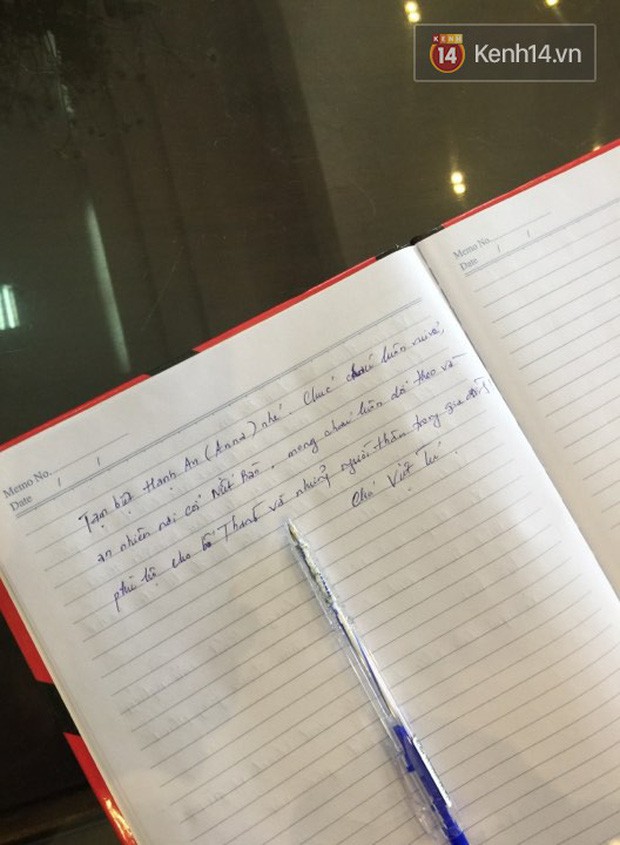 KENH 14 Kenh14.vn
Memo No.
Date / /
Memo No.
Date / /
Tạm biệt Hạnh An (Anna) nhé. Chúc cháu luôn vui vẻ,
an nhiên nơi cõi Niết Bàn, mong cháu luôn dõi theo và
phù hộ cho bố Thanh và những người thân trong gia đình!
Chú Việt Tú.